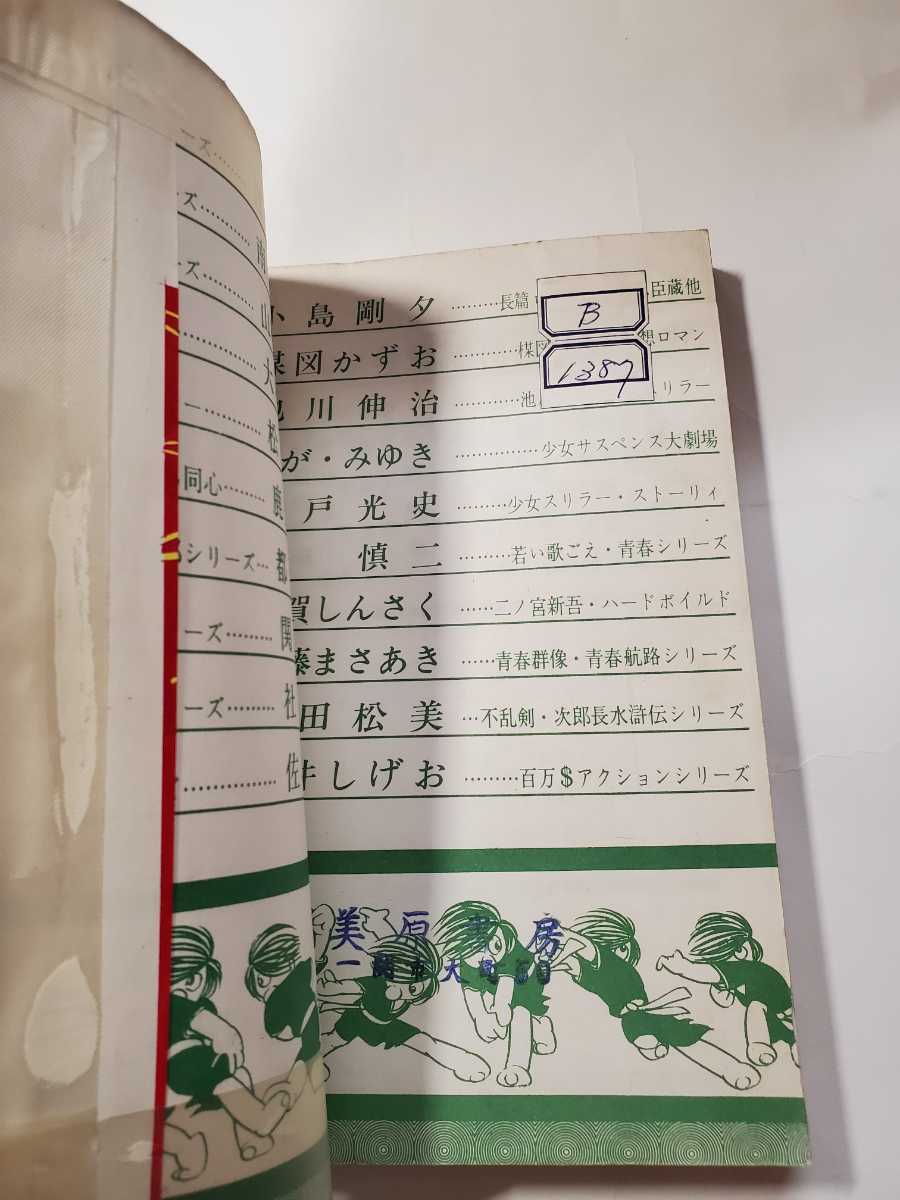 ーズ……
ーズ………… 南
ーズ………… 山
………… 大
ー………… 松
同心……… 鹿
シリーズ… 都
ーズ……… 関
ーズ……… 杜
…………… 佐
小島剛夕………長篇 臣蔵他
楳図かずお…………楳図 想ロマン
川伸治…………池 リラー
が・みゆき……………少女サスペンス大劇場
戸光史………少女スリラー・ストーリィ
慎二………若い歌ごえ・青春シリーズ
賀しんさく……二ノ宮新吾・ハードボイルド
まさあき……青春群像・青春航路シリーズ
田松美…不乱剣・次郎長水滸伝シリーズ
井しげお………百万$アクションシリーズ
B
1387
美原書房
一関市大町50